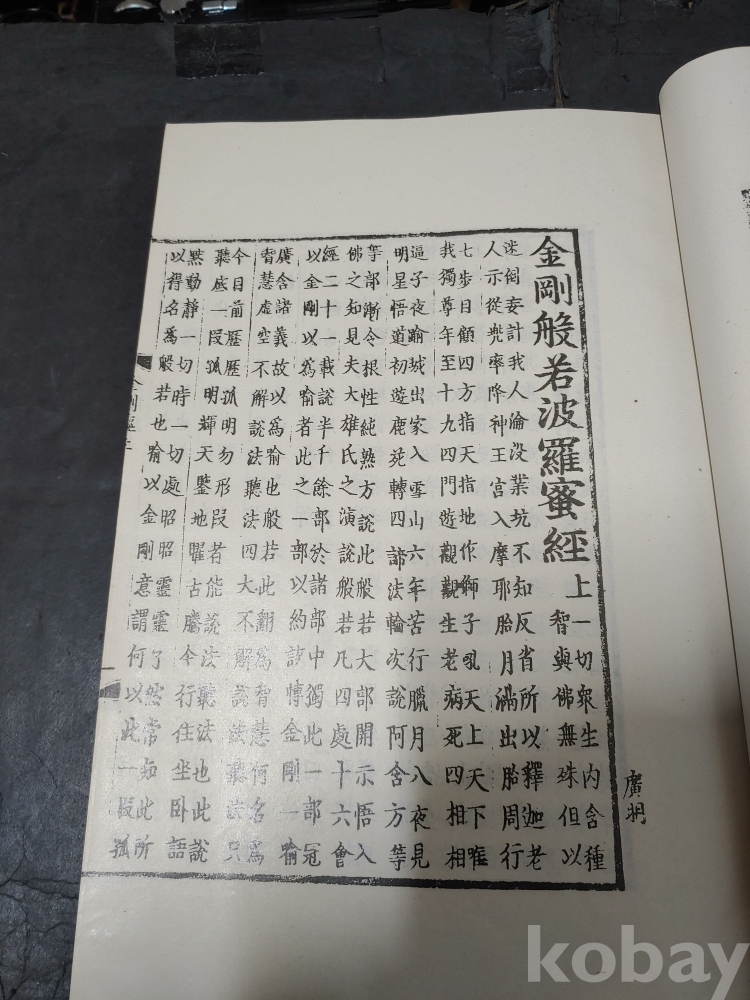 金剛般若波羅蜜經上
一切衆生内含種
智與佛無殊但以
迷倒妄計我人淪没業坑不知反省所以釋迦老
人示從兜率降神王宫入摩耶胎月滿出胎周行
七步目顧四方指天指地作獅子吼天上天下唯
我獨尊年至十九四門遊觀覩生老病死四相相
逼子夜踰城出家入雪山六年苦行臘月八夜見
明星悟道初遊鹿苑轉四諦法輪次說阿含方等
等部漸令根性純熟方說此般若大部開示悟入
佛之知見夫大雄氏之演說般若凡四處十六會
經二十一載說半千餘部於諸部中獨此一部冠
以金剛以爲喻者此之一部以約該愽金剛一喻
廣含諸義故以爲喻也般若此翻爲智慧何名爲
智慧虚空不解說法聽法四大不解說法聽法只
今目前歷歷孤明勿形段者能說法聽法也此說
聽底一段孤明輝天鑒地曜古騰今行住坐卧語
默動静一切時一切處昭昭靈靈了然常知此所
以得名爲般若也喻以金剛意謂何以此一段孤
金剛經上
kobay